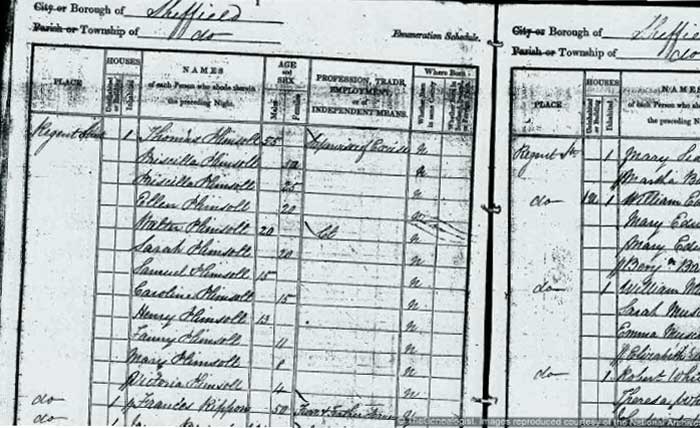 City or Borough of Sheffield
Parish or Township of do
Enumeration Schedule.
PLACE
HOUSES
Uninhabited or Building
Inhabited
NAMES
of each Person who abode therein
the preceding Night.
AGE
and
SEX
Males
Females
PROFESSION, TRADE,
EMPLOYMENT,
or of
INDEPENDENT MEANS.
Where Born
Regent Street 1 Thomas Plimsoll 55 Supervisor of Excise N
Priscilla Plimsoll 50 N
Priscilla Plimsoll 25 N
Ellen Plimsoll 20 N
Walter Plimsoll 20 Cl N
Sarah Plimsoll 20 N
Samuel Plimsoll 15 N
Caroline Plimsoll 15 N
Henry Plimsoll 13 N
Fanny Plimsoll 11 N
Mary Plimsoll 8 N
Victoria Plimsoll 4 N
do 1 Frances Rippon 50
do
City or Borough of Sheffield
Parish or Township of do
PLACE
HOUSES
Uninhabited or Building
Inhabited
NAM
of each Person who
the preceding N
Regent St 1 Mary
Martha
do 1 William Ed
Mary Edw
Mary Edw
Benj
do 1 William
Sarah
Emma
Elizabeth
do 1 Robert Whi
Theresa Wh
© TheGenealogist. Images reproduced courtesy of the National Archi